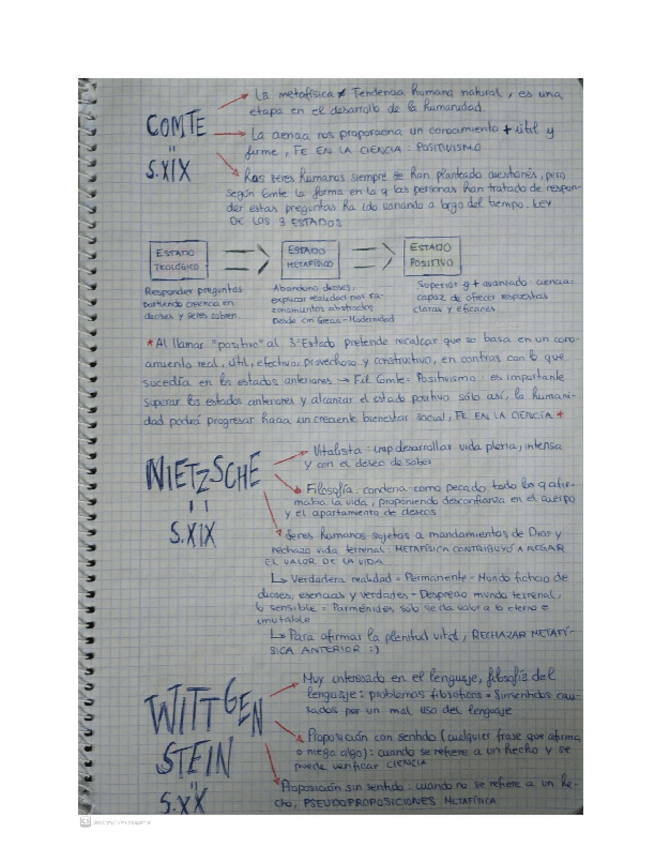 La metafísica ≠ Tendencia humana natural, es una
etapa en el desarrollo de la humanidad.
COMTE
=
S.XIX
La ciencia nos proporciona un conocimiento + útil y
firme, FE EN LA CIENCIA: POSITIVISMO
Los seres humanos siempre se han planteado cuestiones, pero
según Comte la forma en la q las personas han tratado de respon-
der estas preguntas ha ido variando a largo del tiempo. LEY
DE LOS 3 ESTADOS
ESTADO
TEOLÓGICO
ESTADO
METAFÍSICO
ESTADO
POSITIVO
Responder preguntas
creencia en
dioses y seres sobren.
Abandono dioses,
explicar realidad por ra-
zonamientos abstractos
Desde Grecia-Modernidad
Superior y + avanzado: ciencia
capaz de ofrecer respuestas
claras y eficaces
* Al llamar "positivo" al 3º Estado pretende recalcar que se basa en un cono-
cimiento real, útil, efectivo, provechoso y constructivo, en contras con lo que
sucedía en los estados anteriores → Fil. Comte = Positivismo: es importante
superar los estados anteriores y alcanzar el estado positivo sólo así, la humani-
dad podrá progresar hacia un creciente bienestar social, FE EN LA CIENCIA *
NIETZSCHE
=
S.XIX
Vitalista: imp desarrollar vida plena, intensa
y con el deseo de saber
Filosofía: condena como pecado todo lo q afir-
maba la vida, proponiendo desconfianza en el cuerpo
y el apartamiento de deseos
Seres humanos sujetos a mandamientos de Dios y
rechazo vida terrenal: METAFÍSICA CONTRIBUYÓ A NEGAR
EL VALOR DE LA VIDA
↳ Verdadera realidad = Permanente - Mundo ficticio de
dioses, esencias y verdades - Desprecio mundo terrenal,
lo sensible = Parménides solo se da valor a lo eterno e
inmutable
↳ Para afirmar la plenitud vital, RECHAZAR METAFÍ-
SICA ANTERIOR :)
WITTGEN
STEIN
=
S.XX
Muy interesado en el lenguaje, filosofía del
lenguaje: problemas filosóficos = Sinsentidos cau-
sados por un mal uso del lenguaje
Proposición con sentido (cualquier frase que afirma
o niega algo): cuando se refiere a un hecho y se
puede verificar CIENCIA
Proposición sin sentido: cuando no se refiere a un he-
cho, PSEUDOPROPOSICIONES METAFÍSICA
CS